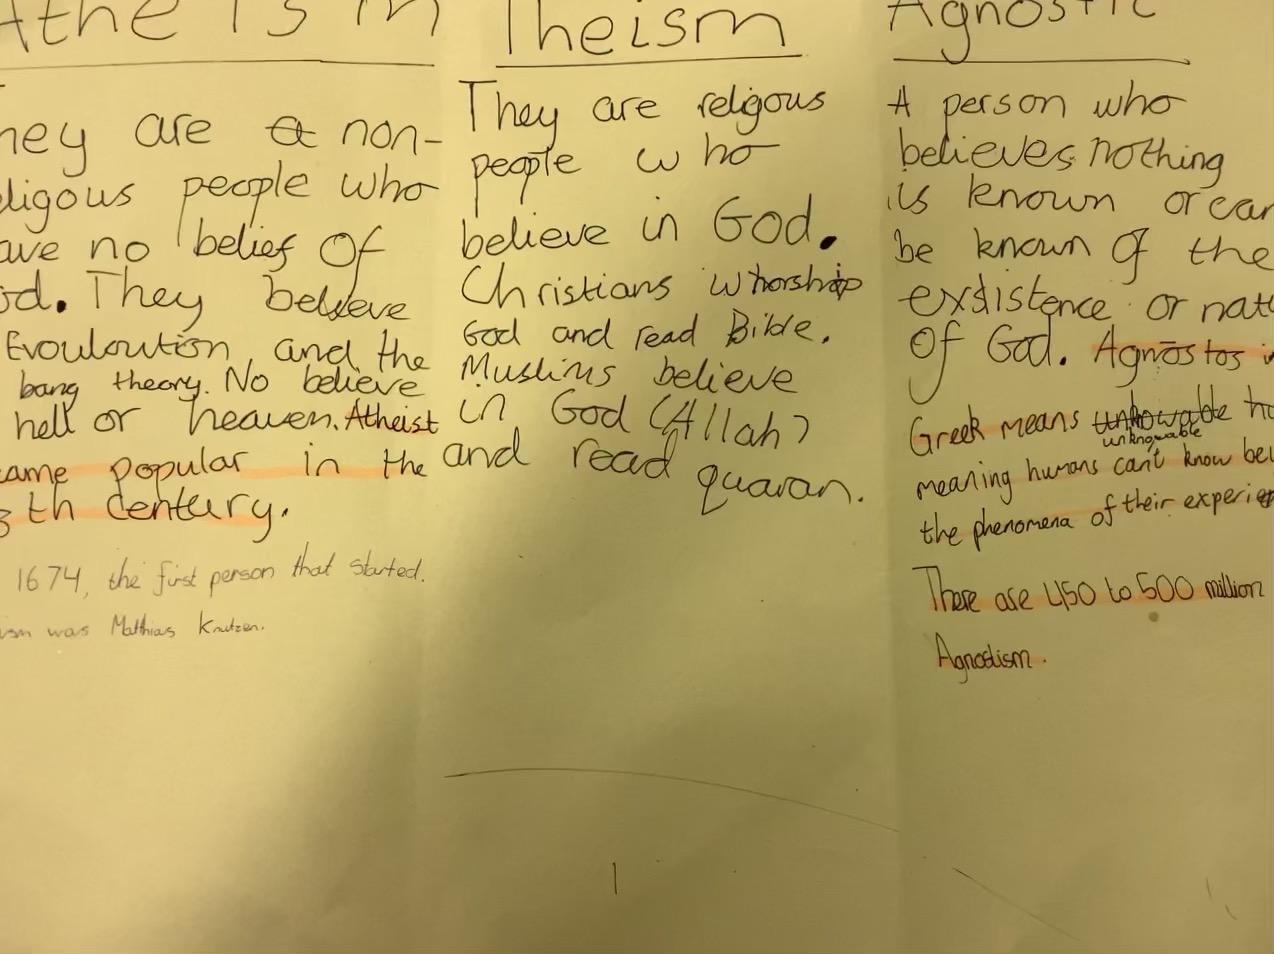 Atheism
hey are a non-
ligous people who
ave no belief of
od. They beleeve
Evouloution and the
bang theory. No believe
hell or heaven. Atheist
came popular in the
th century.
1674, the first person that started.
ism was Matthias Knutzen.
Theism
They are religous
people who
believe in God.
Christians whorship
God and read Bible.
Muslims believe
in God (Allah)
and read quaran.
Agnostic
A person who
believes nothing
is known or can
be known of the
exsistence or nat
of God. Agnostos i
Greek means unknowable
unknowable
meaning humans can't know be
the phenomena of their experie
There are 450 to 500 million
Agnostism.